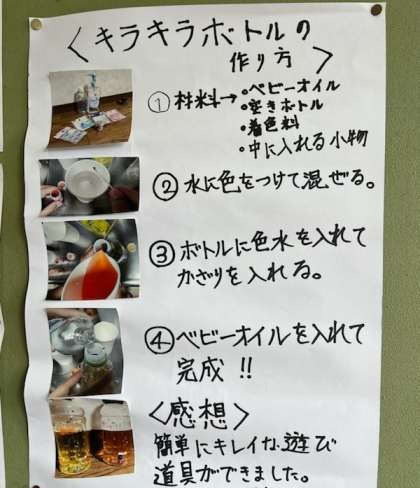 〈キラキラボトルの
作り方〉
①材料→・ベビーオイル
・空きボトル
・着色料
・中に入れる小物
②水に色をつけて混ぜる。
③ボトルに色水を入れて
かざりを入れる。
④ベビーオイルを入れて
完成!!
〈感想〉
簡単にキレイな遊び
道具ができました。